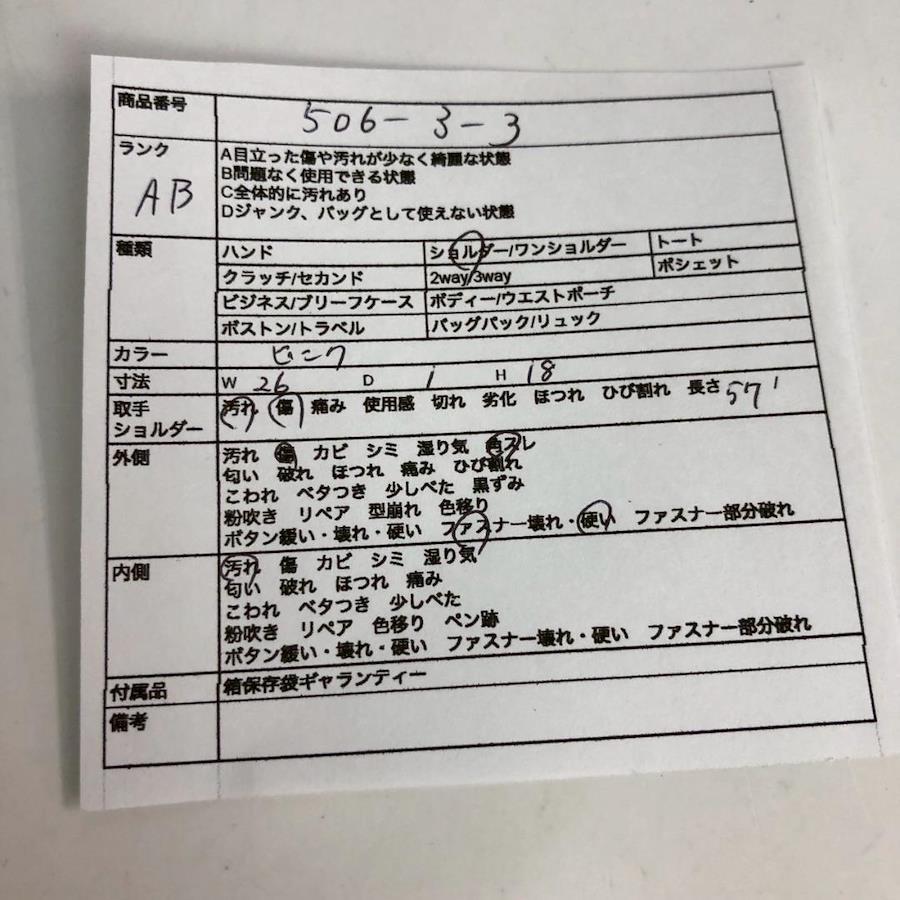 商品番号 506-3-3
ランク A目立った傷や汚れが少なく綺麗な状態
B問題なく使用できる状態
AB C全体的に汚れあり
Dジャンク、バッグとして使えない状態
種類 ハンド ショルダー/ワンショルダー トート
クラッチ/セカンド 2way/3way ポシェット
ビジネス/ブリーフケース ボディー/ウエストポーチ
ボストン/トラベル バッグパック/リュック
カラー ピンク
寸法 W 26 D 1 H 18
取手 汚れ 傷 痛み 使用感 切れ 劣化 ほつれ ひび割れ 長さ 57
ショルダー
外側 汚れ 傷 カビ シミ 湿り気 色スレ
匂い 破れ ほつれ 痛み ひび割れ
こわれ ベタつき 少しべた 黒ずみ
粉吹き リペア 型崩れ 色移り
ボタン緩い・壊れ・硬い ファスナー壊れ・硬い ファスナー部分破れ
内側 汚れ 傷 カビ シミ 湿り気
匂い 破れ ほつれ 痛み
こわれ ベタつき 少しべた
粉吹き リペア 色移り ペン跡
ボタン緩い・壊れ・硬い ファスナー壊れ・硬い ファスナー部分破れ
付属品 箱保存袋ギャランティー
備考